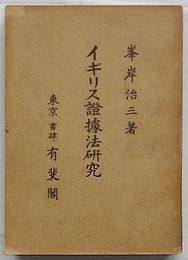 峯岸治三著
イギリス證據法硏究
東京 書肆 有斐閣